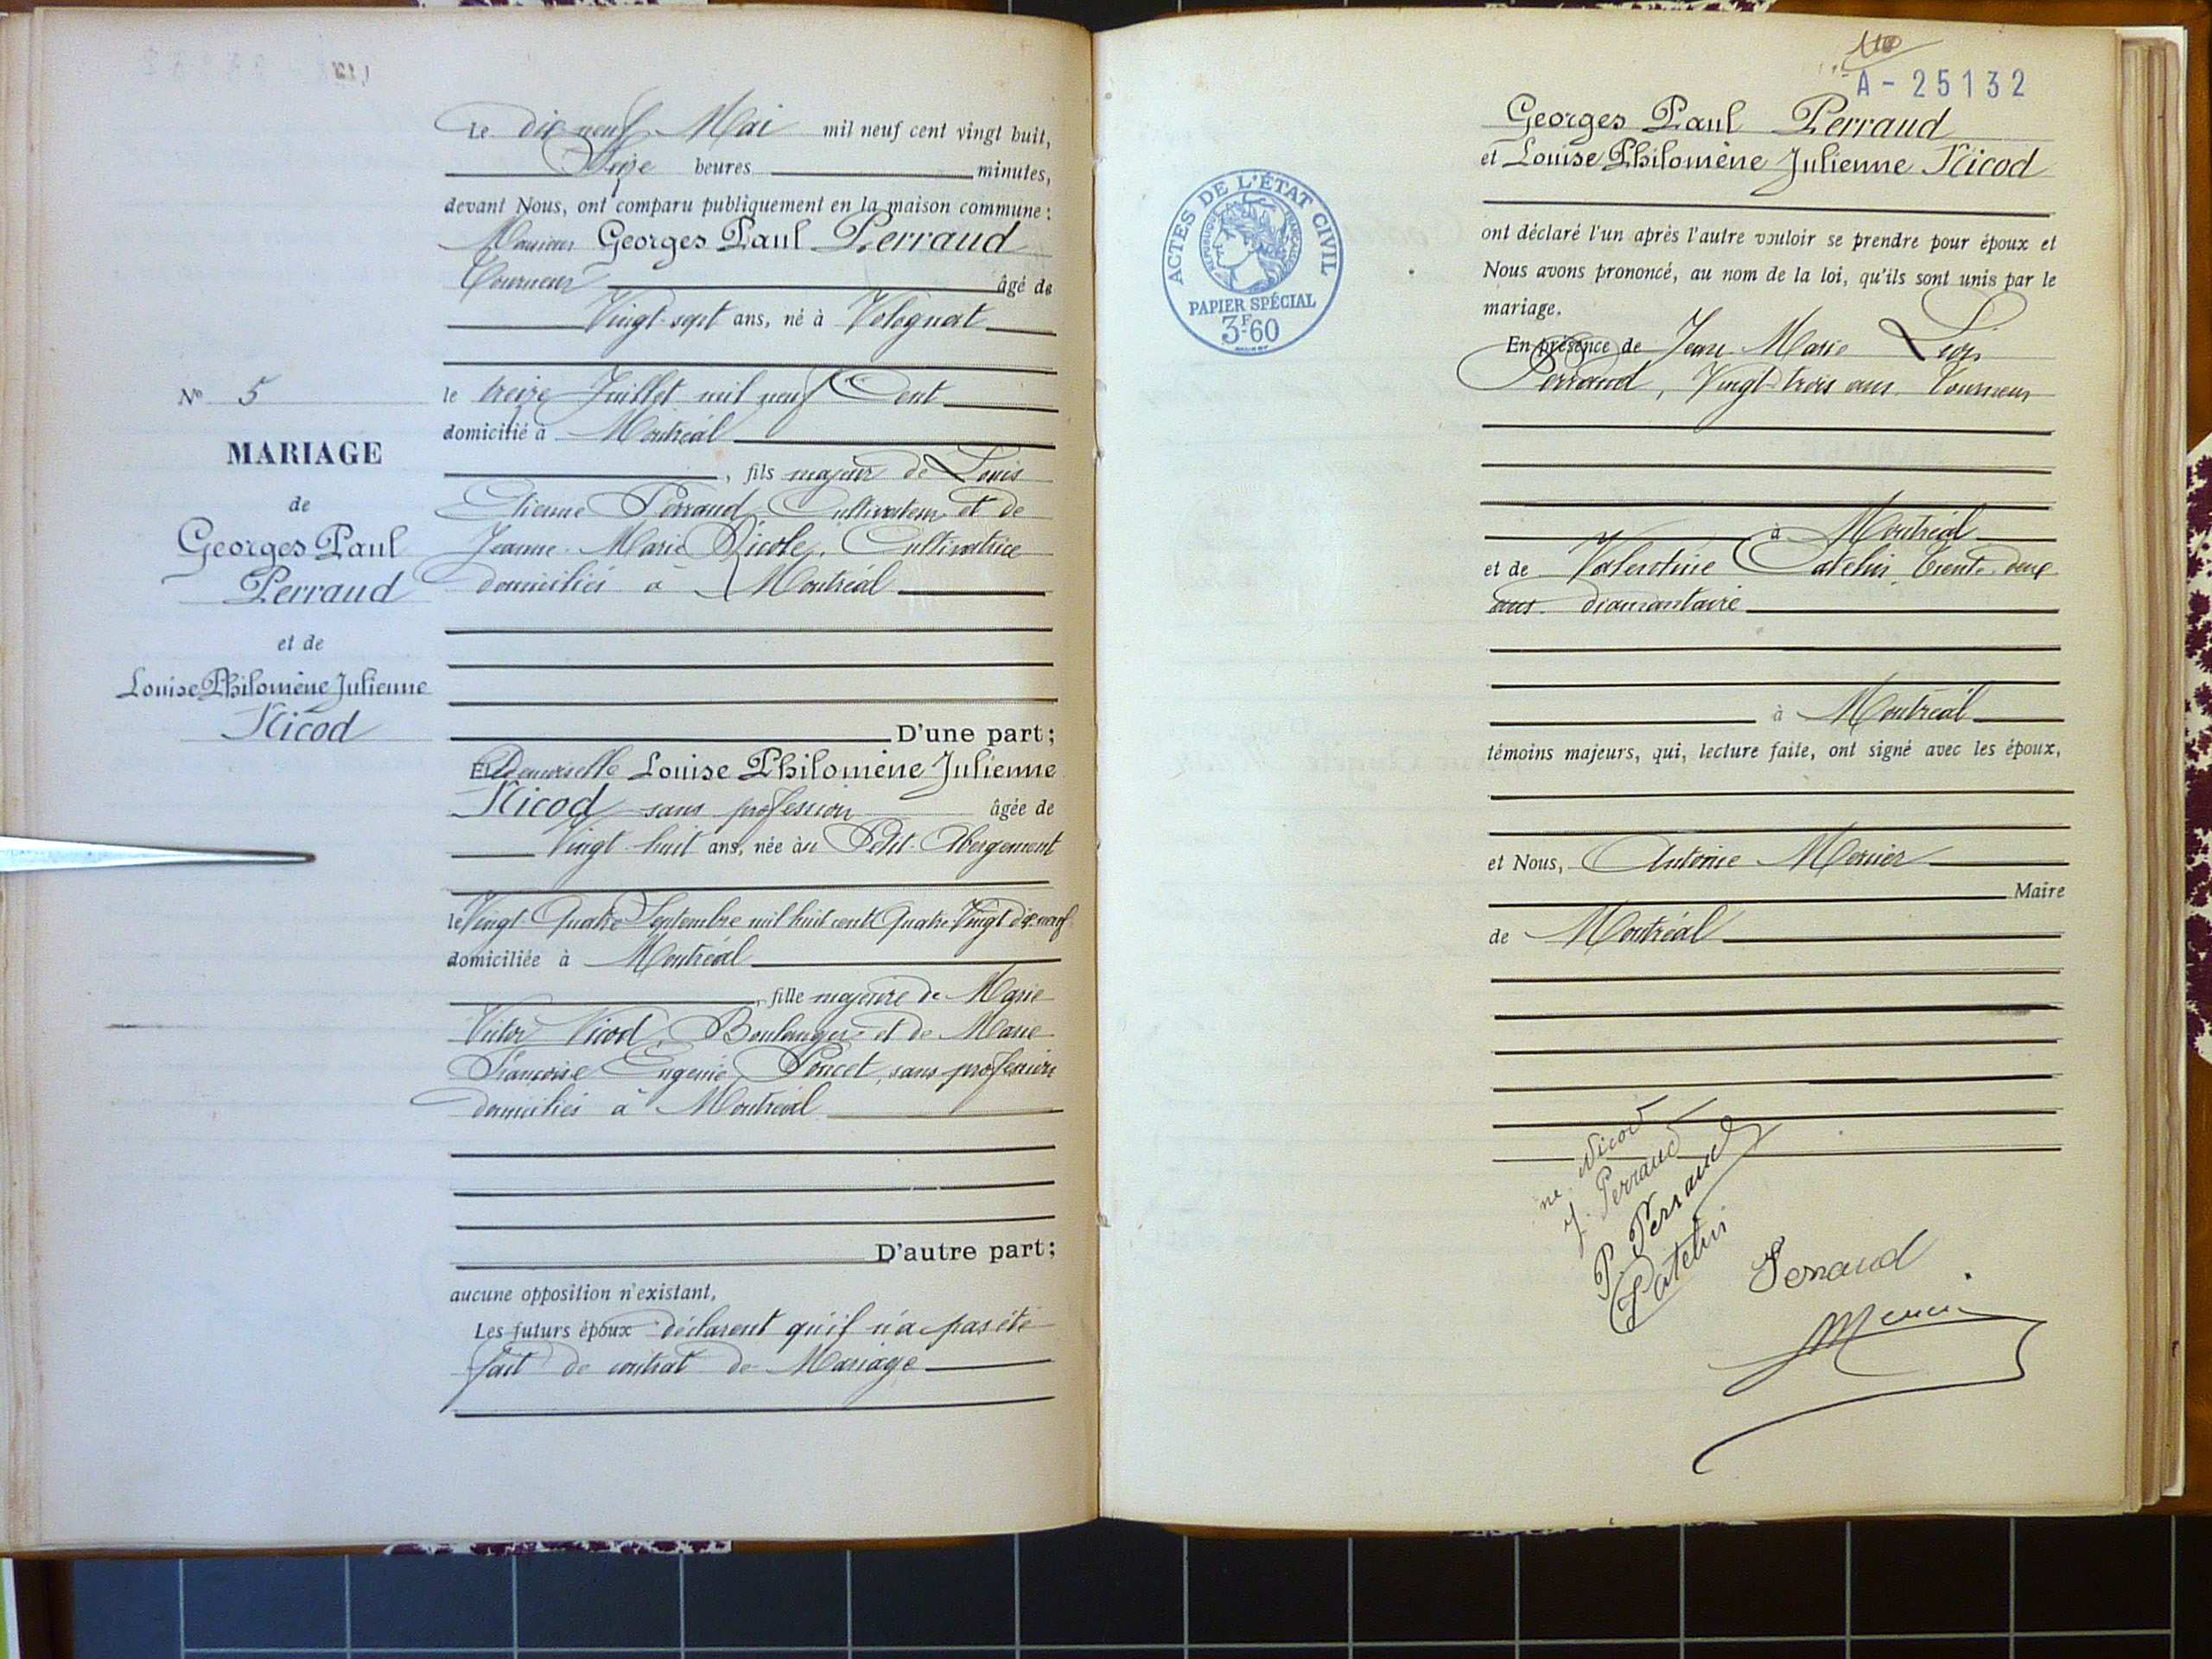 Le dix neuf Mai mil neuf cent vingt huit,
Seize heures minutes,
devant Nous, ont comparu publiquement en la maison commune :
Monsieur Georges Paul Perraud
Tourneur âgé de
Vingt-sept ans, né à Volognat
le treize Juillet mil neuf Cent
domicilié à Montréal
, fils majeur de Louis
Etienne Perraud, Cultivateur et de
Jeanne-Marie Picole, Cultivatrice
domiciliés à Montréal
D'une part ;
Nº 5
MARIAGE
de
Georges Paul
Perraud
et de
Louise Philomène Julienne
Nicod
Et Demoiselle Louise Philomène Julienne
Nicod sans profession âgée de
Vingt-huit ans, née au Petit-Abergement
le Vingt-Quatre Septembre mil huit cent Quatre-Vingt dix-neuf
domiciliée à Montréal
, fille majeure de Marie
Victor Nicod, Boulanger et de Marie
Françoise Eugénie Poncet, sans profession
domiciliés à Montréal
D'autre part ;
aucune opposition n'existant,
Les futurs époux déclarent qu'il n'a pas été
fait de contrat de Mariage
A - 25132
Georges Paul Perraud
et Louise Philomène Julienne Nicod
ACTES DE L'ÉTAT CIVIL
RÉPUBLIQUE FRANÇAISE
PAPIER SPÉCIAL
3F60
ont déclaré l'un après l'autre vouloir se prendre pour époux et
Nous avons prononcé, au nom de la loi, qu'ils sont unis par le
mariage.
En présence de Jean-Marie
Perraud, Vingt-trois ans, Tourneur
à Montréal
et de Valentine Patelin Trente-deux
ans diamantaire
à Montréal
témoins majeurs, qui, lecture faite, ont signé avec les époux,
et Nous, Antoine Mercier
Maire
de Montréal
Nicod
J. Perraud
P. Perraud
Patelin
Perraud
Mercier